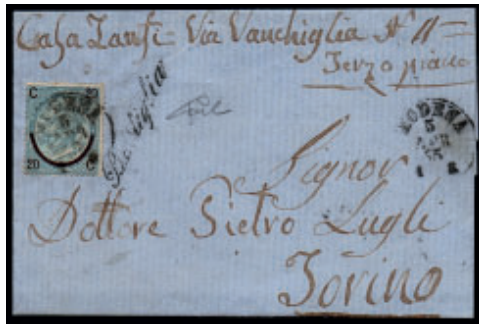 Casa Zanfi = Via Vanchiglia N° 11 =
Terzo piano
C 20
20 C
MODENA
Signor
Dottore Pietro Lugli
Torino